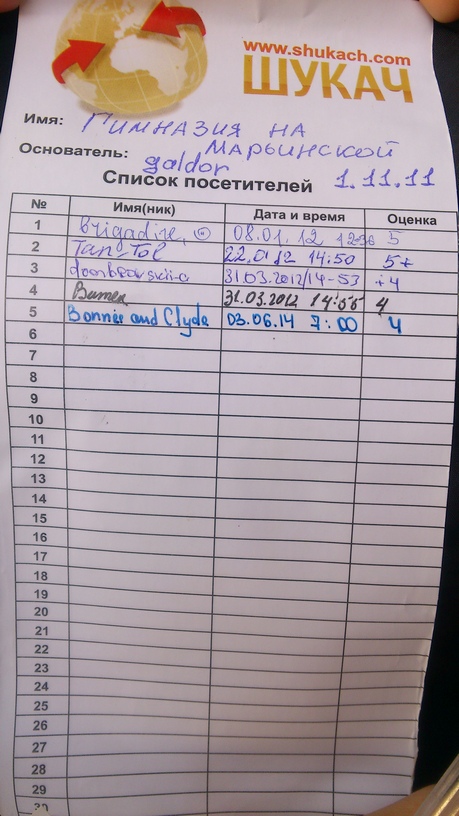 www.shukach.com
ШУКАЧ
Имя: Гимназия на
Марьинской
Основатель: galdor 1.11.11
Список посетителей
№ Имя(ник) Дата и время Оценка
1 Brigadire, 08.01.12 12-36 5
2 Tan-Tol 22.01.12 14:50 5+
3 dombrovskii-a 31.03.2012/14-53 +4
4 31.03.2012 14:55 4
5 Bonnie and Clyde 03.06.14 7:00 4
6
7
8
9
10
11
12
13
14
15
16
17
18
19
20
21
22
23
24
25
26
27
28
29
30